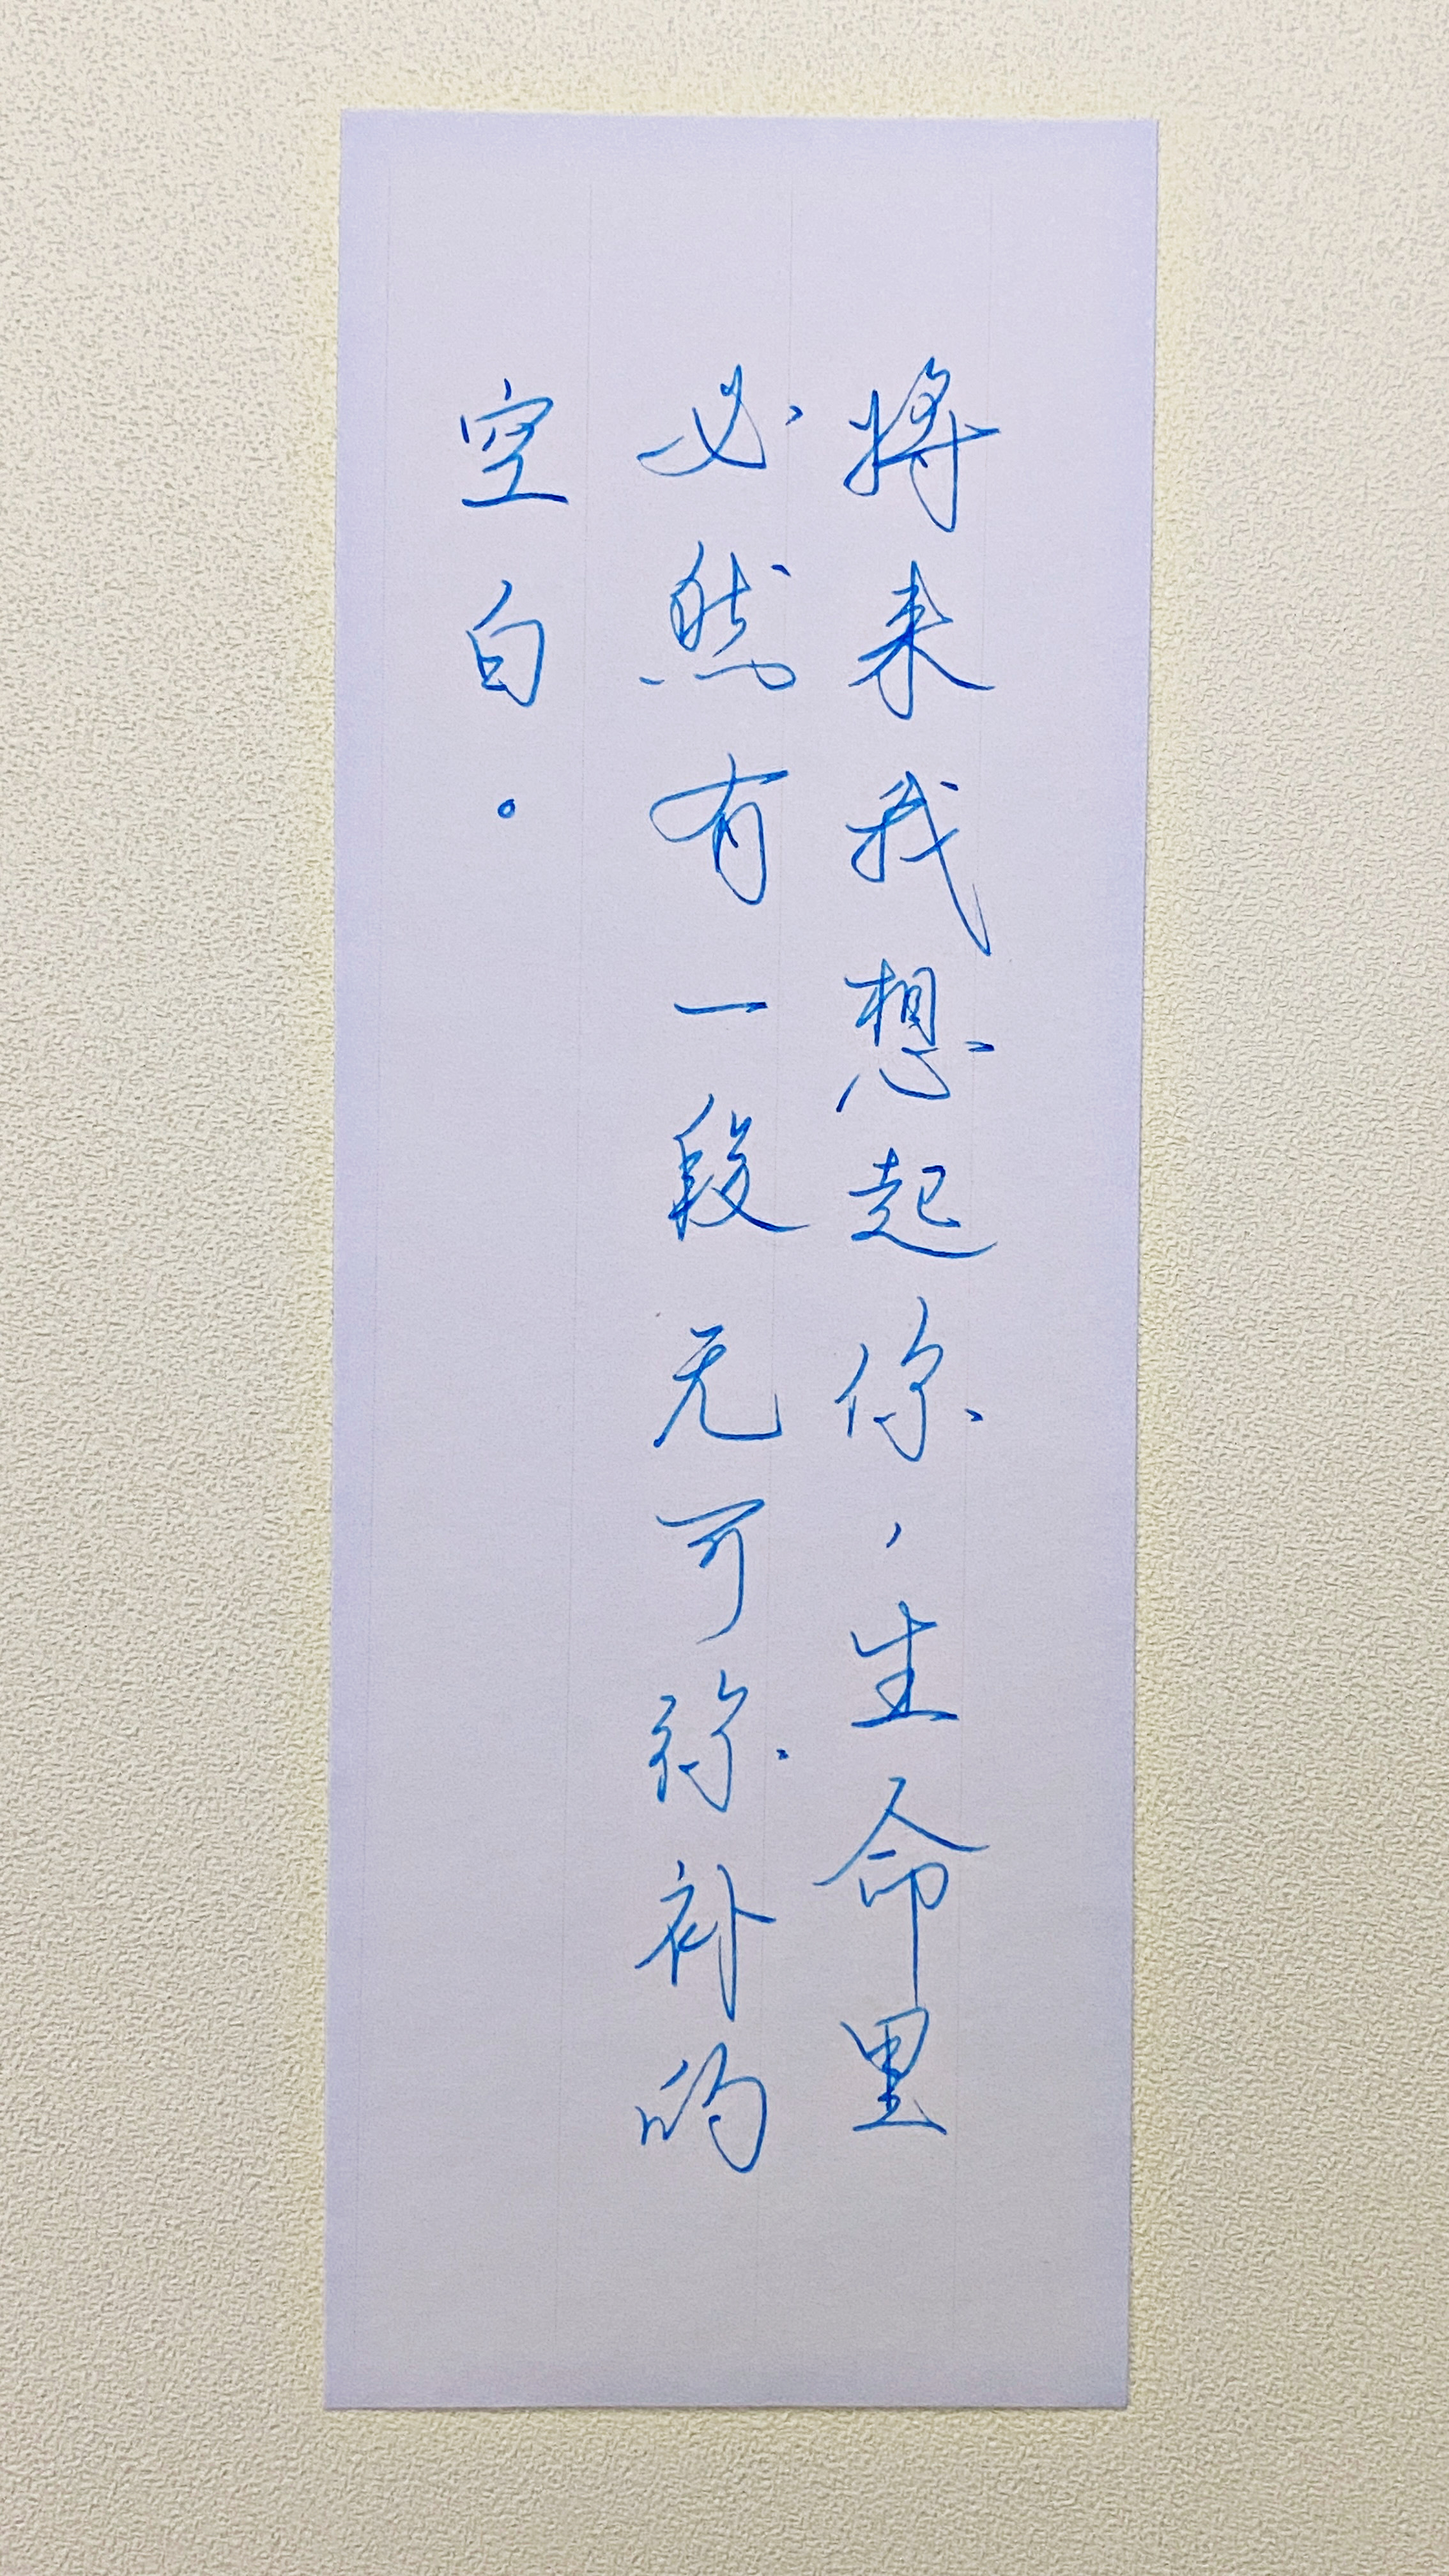 将来我想起你，生命里
必然有一段无可弥补的
空白。